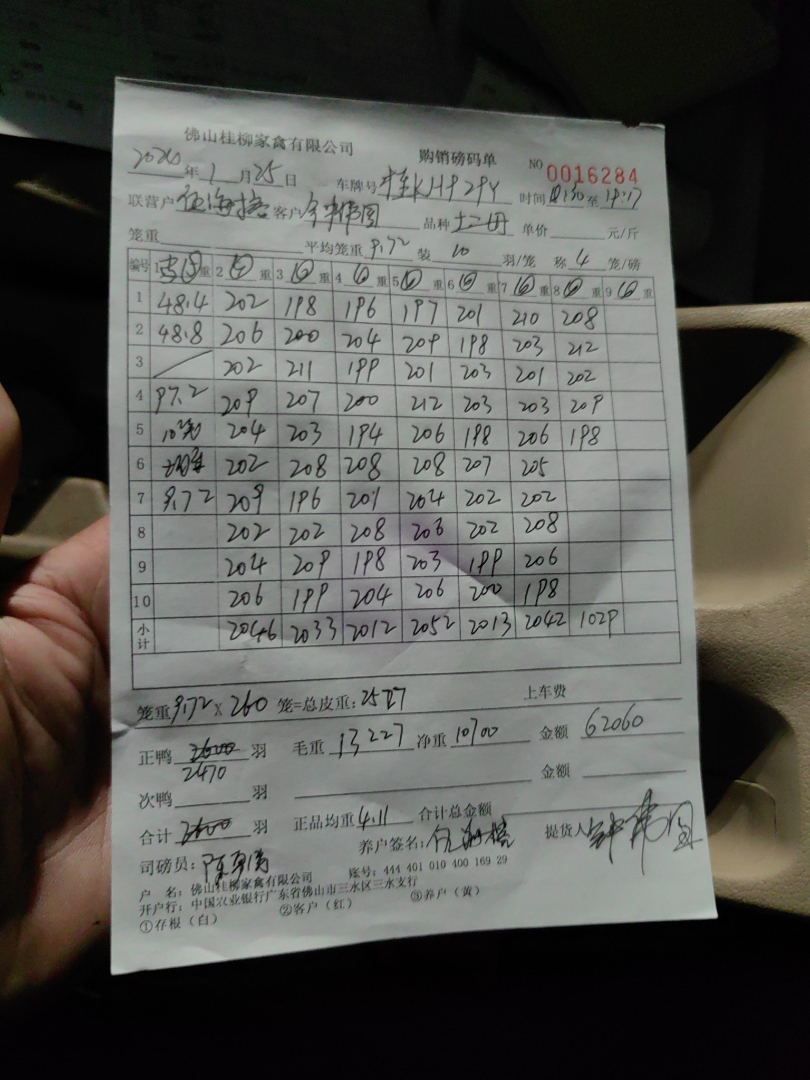 佛山桂柳家禽有限公司 购销磅码单 NO 0016284
年1月25日 车牌号 桂KH929Y 时间 至 19:17
联营户 客户 品种 土二母 单价 元/斤
笼重 平均笼重 9.72 装 10 羽/笼 称 4 笼/磅
编号 1 重 2 重 3 重 4 重 5 重 6 重 7 重 8 重 9 重
1 48.4 202 198 196 197 201 210 208
2 48.8 206 200 204 209 198 203 212
3 202 211 199 201 203 201 202
4 97.2 209 207 200 212 203 203 209
5 204 203 194 206 198 206 198
6 202 208 208 208 207 205
7 9.72 209 196 201 204 202 202
8 202 202 208 206 202 208
9 204 209 198 203 199 206
10 206 199 204 206 200 198
小计 2046 2033 2012 2052 2013 2042 1029
笼重 9.72 X 260 笼=总皮重: 2527 上车费
正鸭 2600 羽 毛重 13227 净重 10700 金额 62060
2470
次鸭 羽 金额
合计 2600 羽 正品均重 4.11 合计总金额
养户签名: 提货人
司磅员:
户 名: 佛山桂柳家禽有限公司 账号: 444 401 010 400 169 29
开户行: 中国农业银行广东省佛山市三水区三水支行
①存根（白） ②客户（红） ③养户（黄）